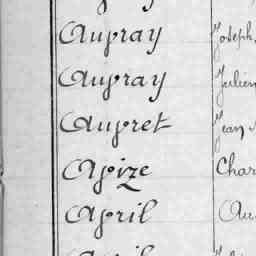 Aupray Joseph
Aupray Julien
Aupret Jean
Apize Char
April Au